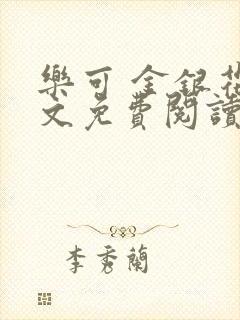 樂可 金銀花
文免費閱讀
李秀蘭